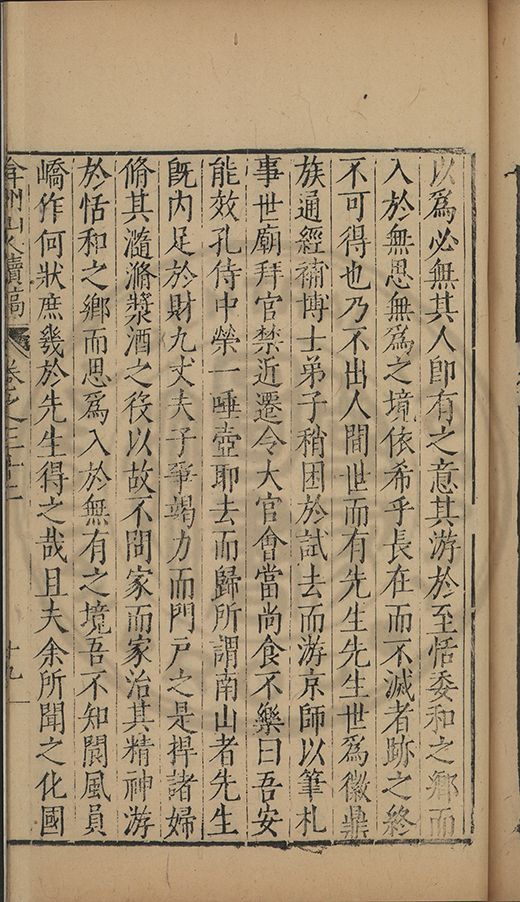 以為必無其人卽有之意其游於至恬委和之鄉而
入於無思無為之境依希乎長在而不滅者跡之終
不可得也乃不出人間世而有先生先生世為徽鼎
族通經補博士弟子稍困於試去而游京師以筆札
事世廟拜官禁近遷令大官會當尚食不樂曰吾安
能效孔侍中榮一唾壺耶去而歸所謂南山者先生
旣內足於財九丈夫子畢竭力而門戶之是捍諸婦
脩其瀡滫漿酒之役以故不問家而家治其精神游
於恬和之鄉而思為入於無有之境吾不知閬風員
嶠作何狀庶幾於先生得之哉且夫余所聞之化國
弇州山人續稿 卷之三十二 十九